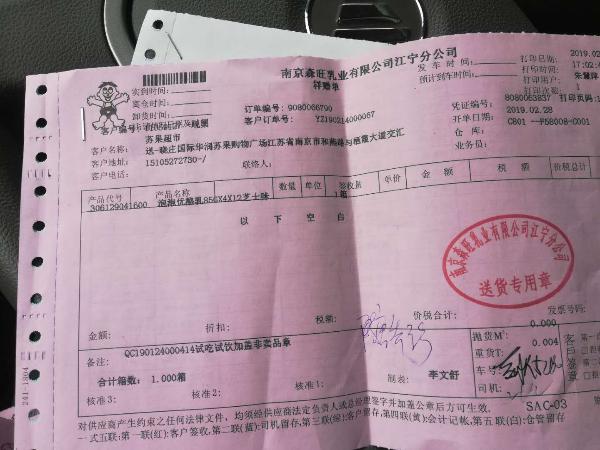 南京森旺乳业有限公司江宁分公司
样赠单
发车时间:
预计到车时间:
打印日期: 2019.02
打印时间: 17:02:4
打印用户:
实到时间:
窗仓时间:
卸货时间:
订单编号: 9080066790
客户订单号: YZ190214000067
凭证编号: 8080063837 打印页码:1
开单日期: 2019.02.28
仓库: C801
业务员:
客户编号:
苏果超市
客户名称: 送-晓庄国际华润苏果购物广场江苏省南京市和燕路与栖霞大道交汇
客户地址: 15105272730-/
联系人:
客户电话:
产品代号 产品名称 数量 单位 签收量 单价 金额 税额 价税总计
306129041600 泡泡优酪乳85GX4X12芝士味 1箱
以下空白
南京森旺乳业有限公司江宁分公司
送货专用章
金额: 折扣: 税额: 价税合计: 发票号码:
备注: QC190124000414试吃试饮加盖非卖品章
抛货M³: 0.000
重货T: 0.004
合计箱数: 1.000箱
车号:
司机:
核准3: 核准2: 核准1: 制表: 李文舒
SAC-03
对供应商产生约束之任何法律文件, 均须经供应商法定负责人或总经理签字并加盖公章后方可生效。
一式五联:第一联(红):客户签收,第二联(蓝):司机留存,第三联(绿):客户留存,第四联(黄):会计记帐,第五联(白):仓管留存